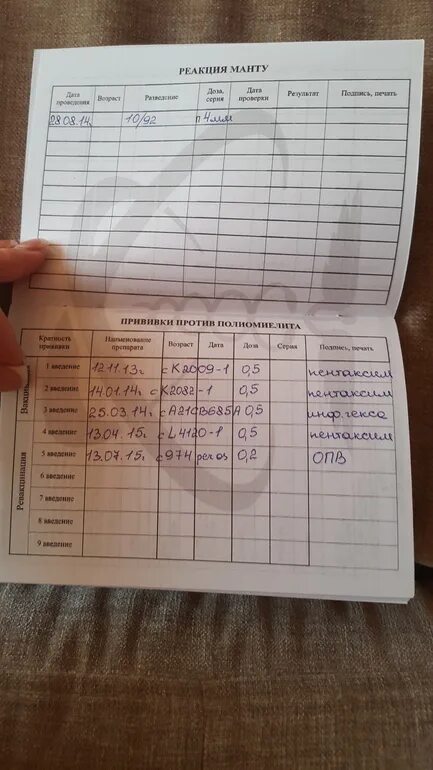 РЕАКЦИЯ МАНТУ
Дата проведения Возраст Разведение Доза, серия Дата проверки Результат Подпись, печать
28.08.14. 10/92 п 4мм
ПРИВИВКИ ПРОТИВ ПОЛИОМИЕЛИТА
Кратность прививки Наименование препарата Возраст Дата Доза Серия Подпись, печать
Вакцинация
1 введение 12.11.13г с К2009-1 0,5 пентаксим
2 введение 14.01.14г с К2082-1 0,5 пентаксим
3 введение 25.03.14г с А21СВ685А 0,5 инф.гекса
Ревакцинация
4 введение 13.04.15г с L4120-1 0,5 пентаксим
5 введение 13.07.15г с 974 per os 0,2 ОПВ
6 введение
7 введение
8 введение
9 введение